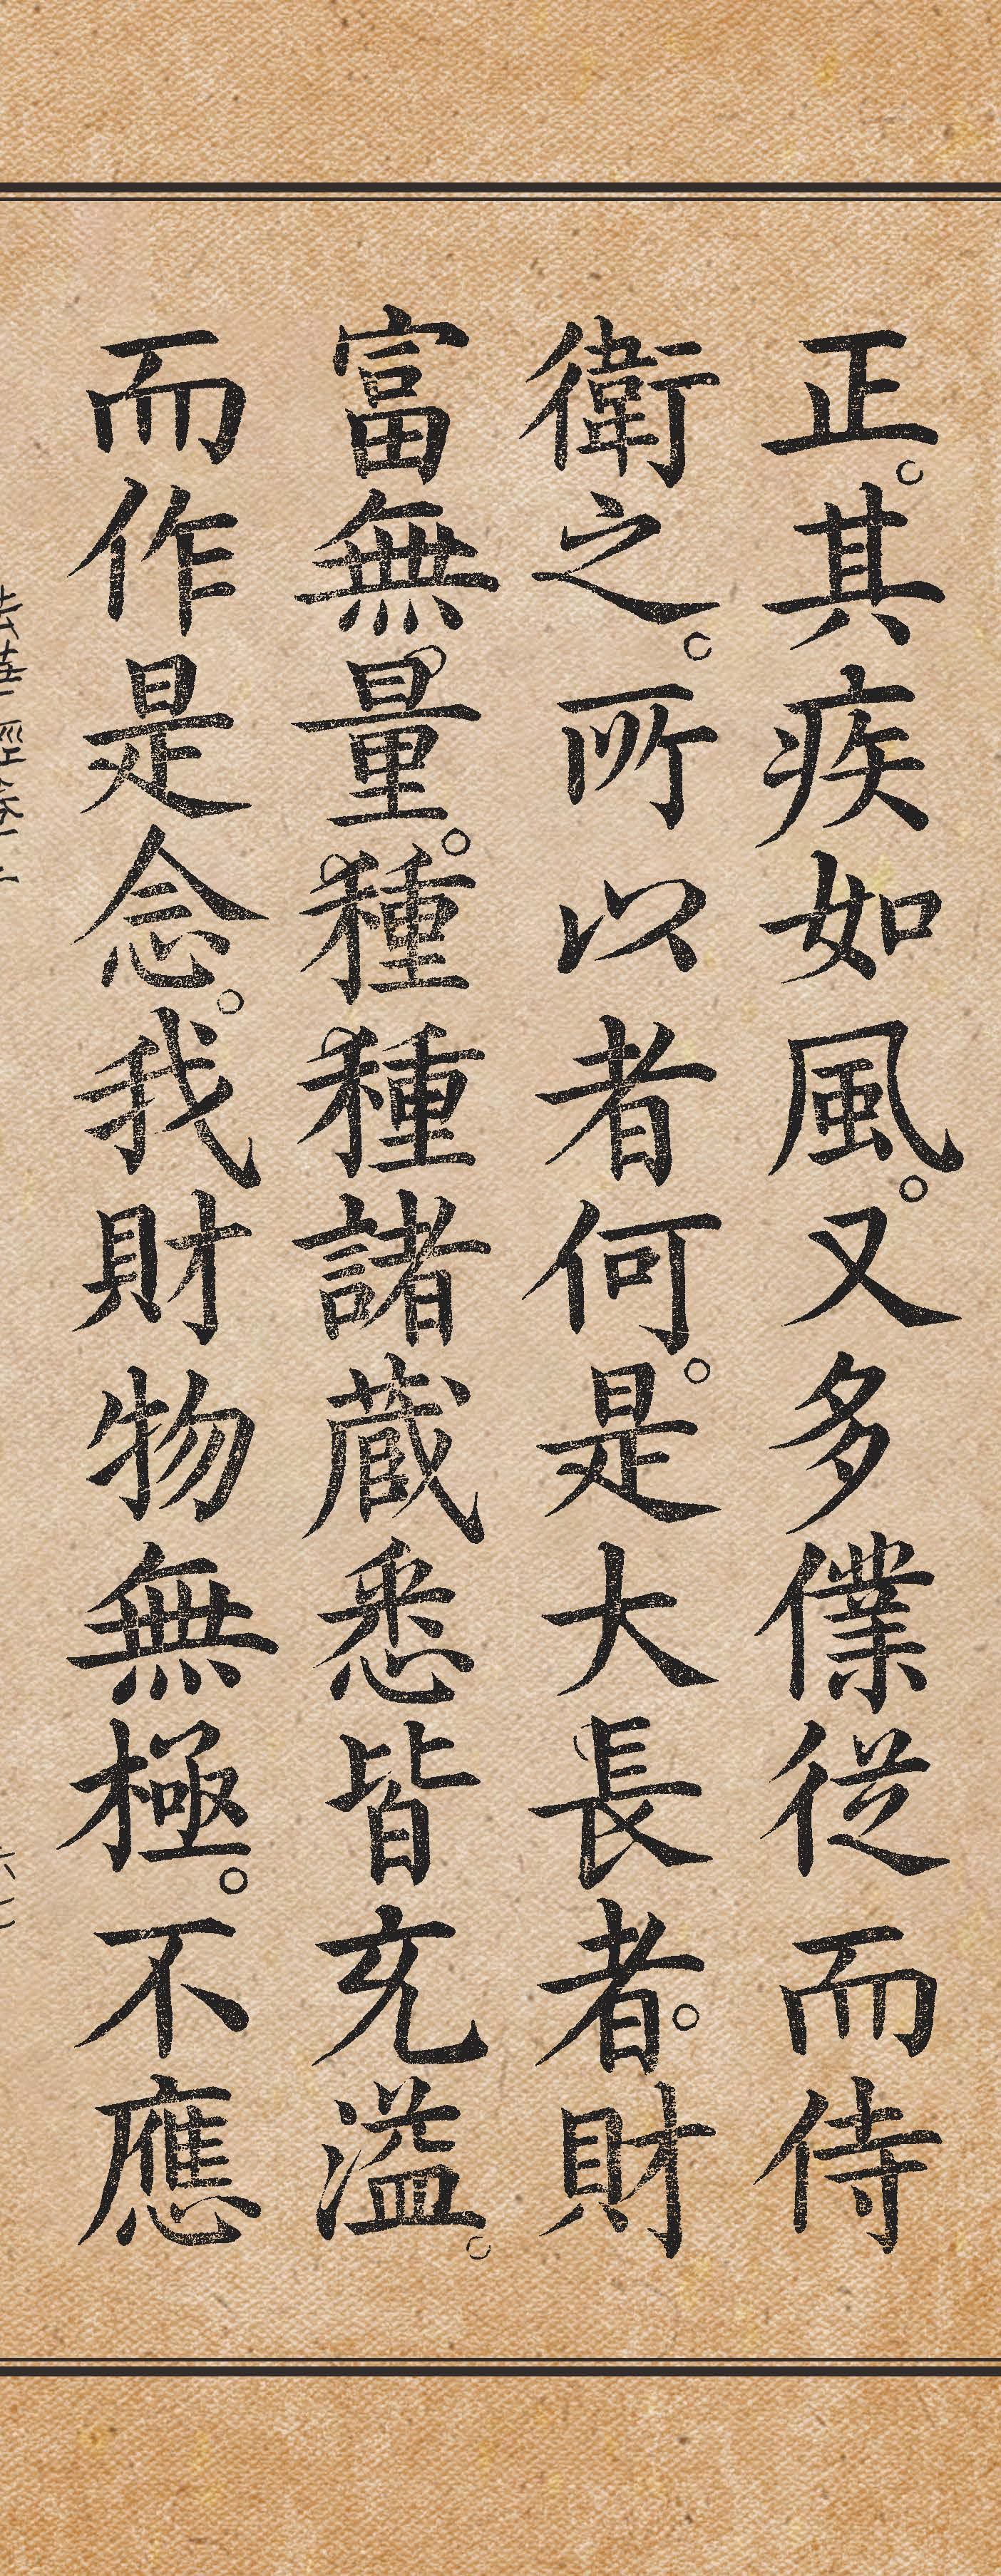 正。其疾如風。又多僕従而侍
衛之。所以者何。是大長者。財
富無量。種種諸蔵悉皆充溢。
而作是念。我財物無極。不應